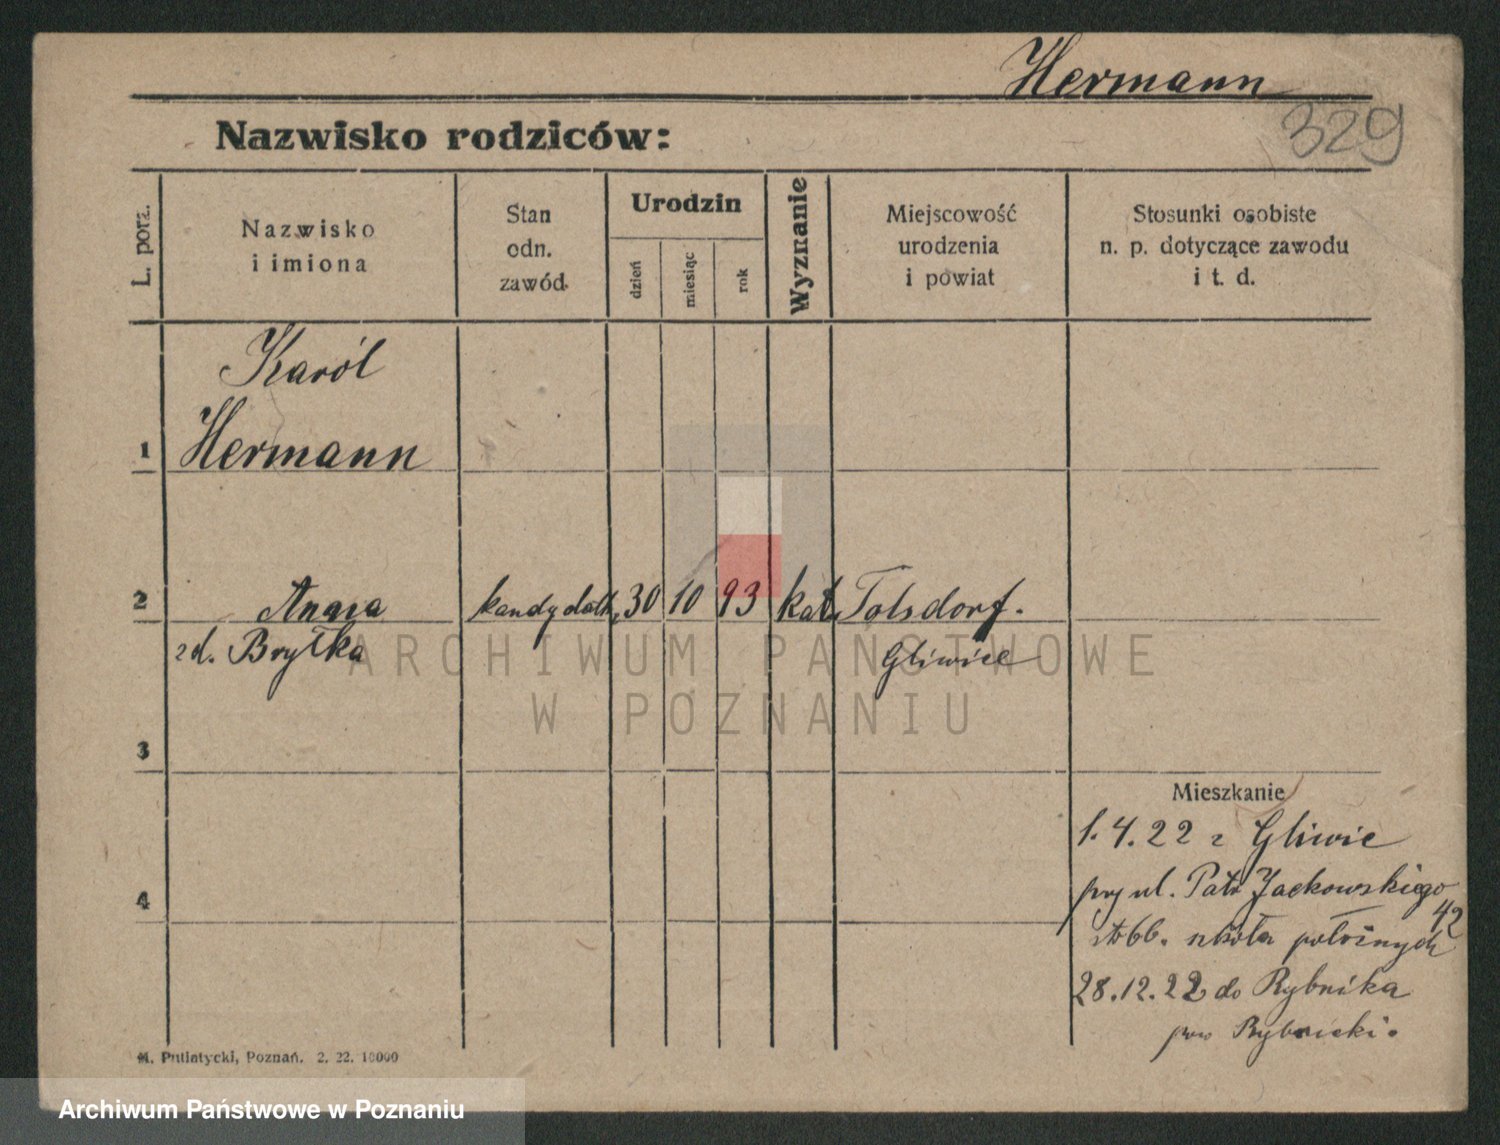 Hermann
329
Nazwisko rodziców:
L. porz.
Nazwisko
i imiona
Stan
odn.
zawód.
Urodzin
dzień
miesiąc
rok
Wyznanie
Miejscowość
urodzenia
i powiat
Stosunki osobiste
n. p. dotyczące zawodu
i t. d.
Karól
1 Hermann
2 Anna kandydatk. 30 10 93 kat. Tolsdorf.
zd. Bryłka Gliwice
3
Mieszkanie
1.4.22 z Gliwic
4
przy ul. Patr Jackowskiego
42
szkoła położnych
28.12.22 do Rybnika
pow Rybnicki.
M. Putiatycki, Poznań. 2. 22. 10000
ARCHIWUM PAŃSTWOWE
W POZNANIU
Archiwum Państwowe w Poznaniu